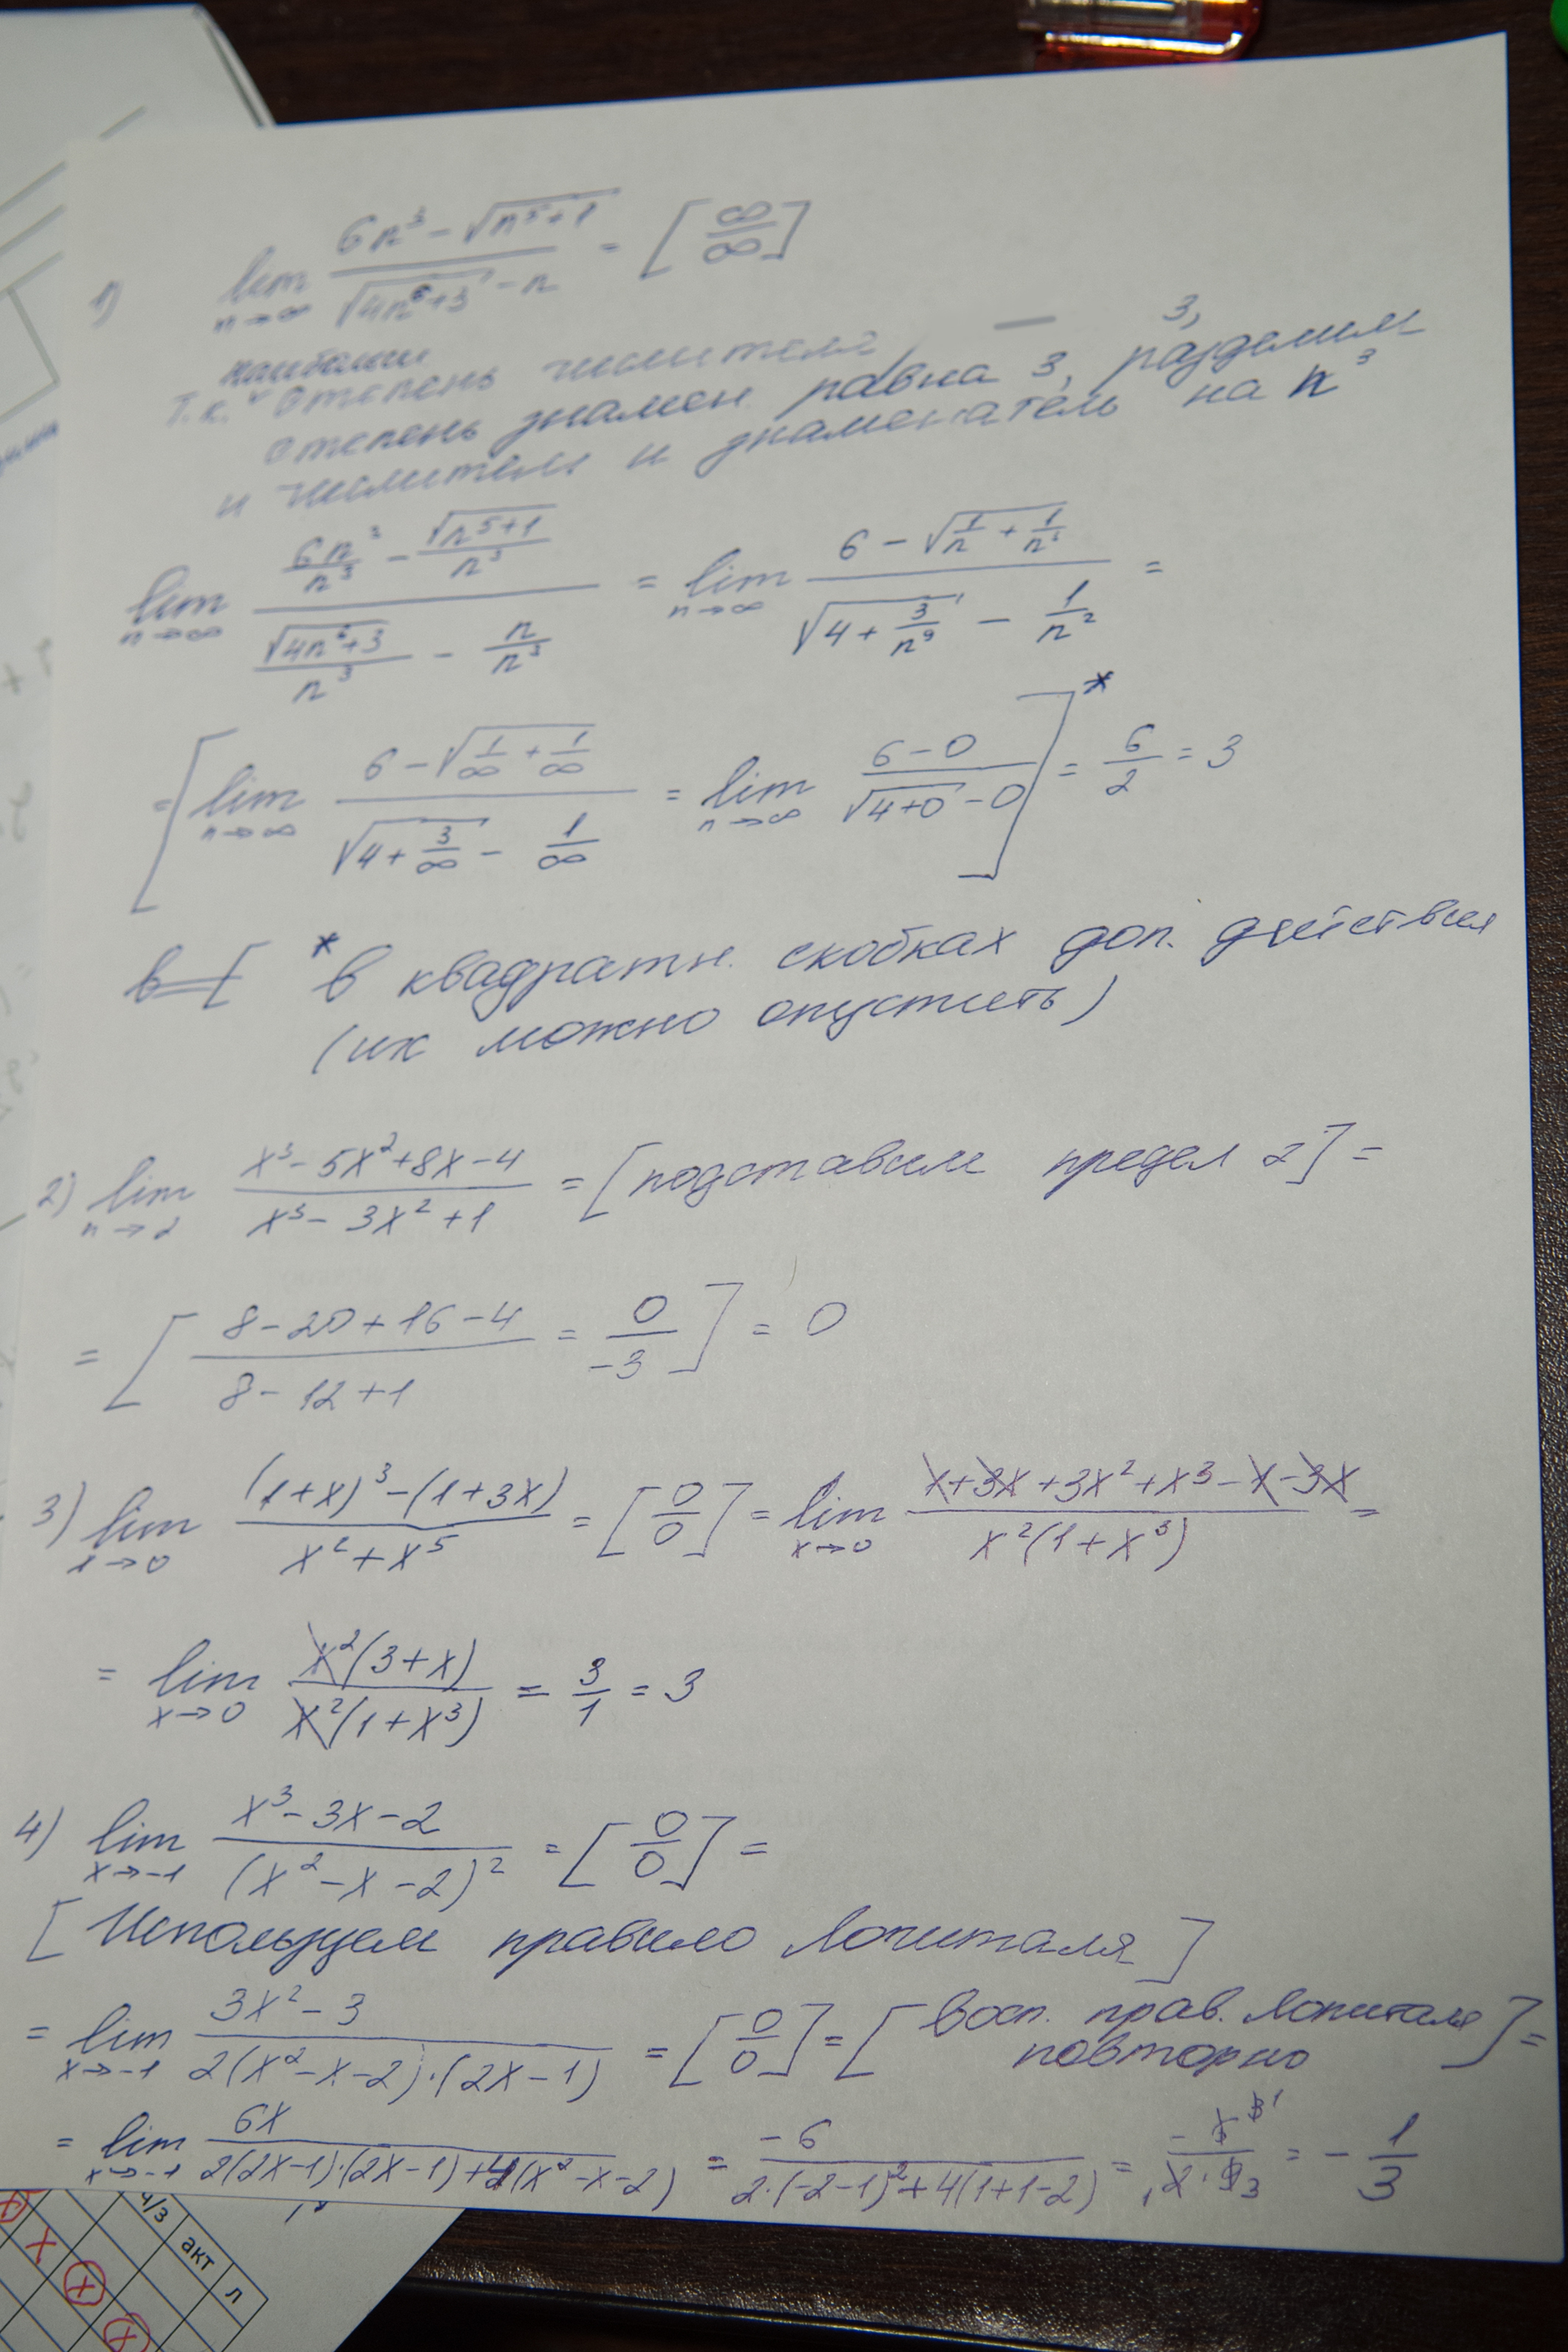 1) lim n→∞ (6n³ − √(n⁵+1)) / (√(4n⁶+3) − n) = [∞/∞]
наибольш
Т.к. степень числителя — 3,
степень знамен. равна 3, разделим
и числитель и знаменатель на n³
lim n→∞ (6n³/n³ − √(n⁵+1)/n³) / (√(4n⁶+3)/n³ − n/n³) = lim n→∞ (6 − √(1/n + 1/n⁶)) / (√(4 + 3/n⁹) − 1/n²) =
= [lim n→∞ (6 − √(1/∞ + 1/∞)) / (√(4 + 3/∞) − 1/∞) = lim n→∞ (6−0) / (√(4+0) − 0)]* = 6/2 = 3
* в квадратн. скобках доп. действия
(их можно опустить)
2) lim n→2 (x³ − 5x² + 8x − 4) / (x³ − 3x² + 1) = [подставим предел 2] =
= [(8 − 20 + 16 − 4) / (8 − 12 + 1) = 0/−3] = 0
3) lim x→0 ((1+x)³ − (1+3x)) / (x² + x⁵) = [0/0] = lim x→0 (x + 3x + 3x² + x³ − x − 3x) / (x²(1+x³)) =
= lim x→0 x²(3+x) / x²(1+x³) = 3/1 = 3
4) lim x→−1 (x³ − 3x − 2) / (x² − x − 2)² = [0/0] =
[Используем правило Лопиталя]
= lim x→−1 (3x² − 3) / (2(x² − x − 2)·(2x − 1)) = [0/0] = [Восп. прав. Лопиталя
повторно] =
= lim x→−1 6x / (2(2x−1)·(2x−1) + 4(x² − x − 2)) = −6 / (2·(−2−1)² + 4(1+1−2)) = = − 1/3
ч/з
акт
л